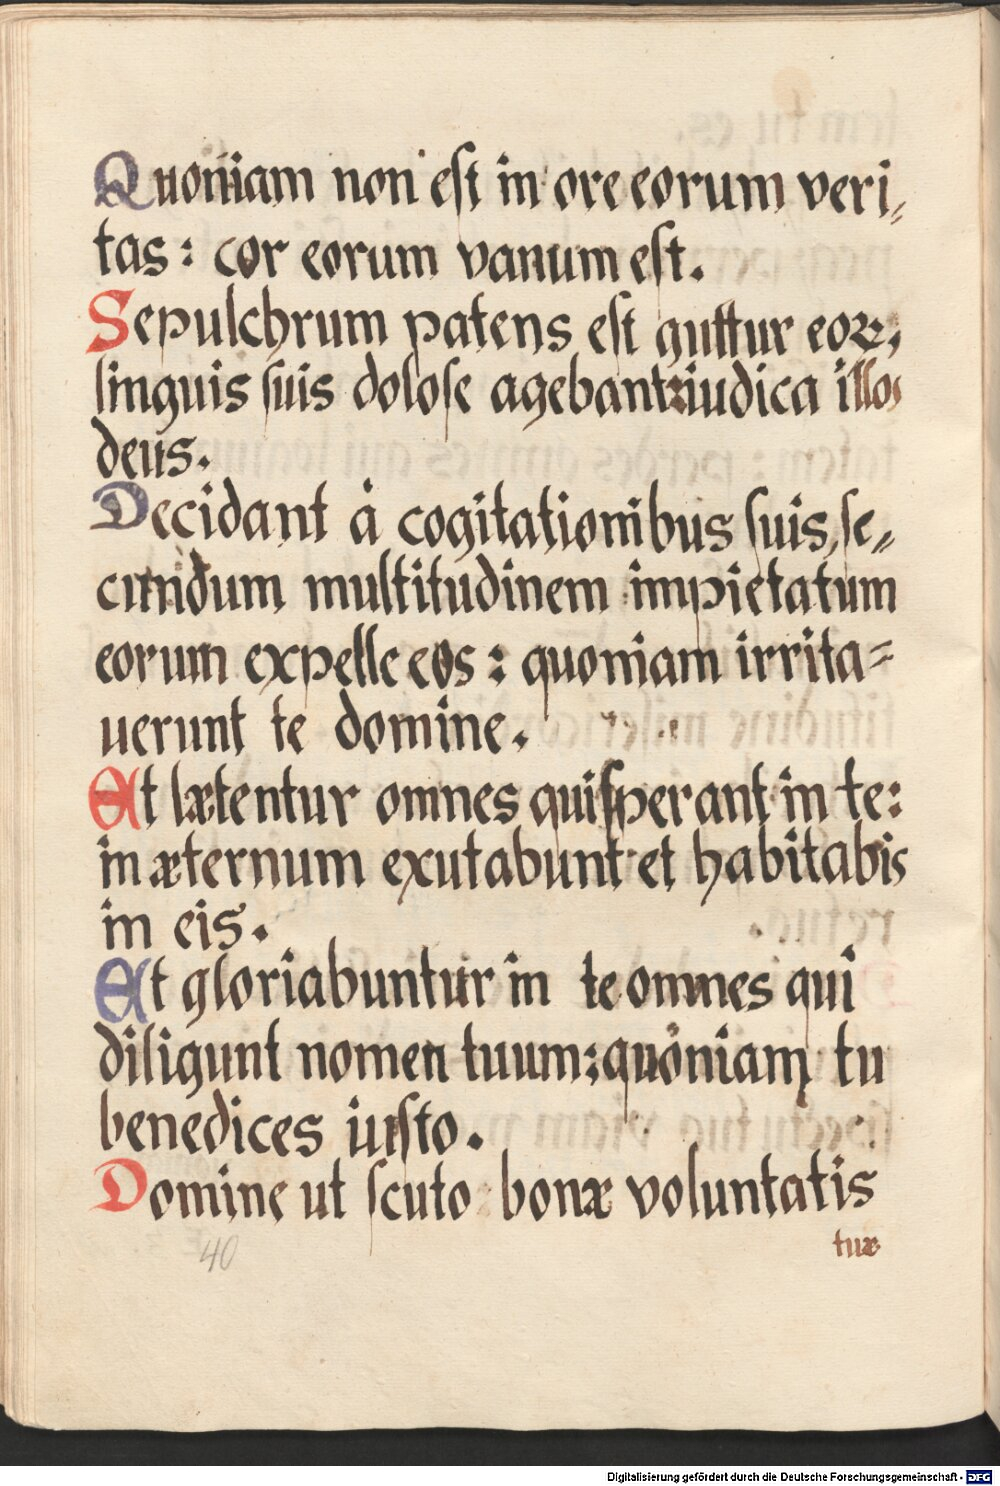 Quoniam non est in ore eorum veri,
tas: cor eorum vanum est.
Sepulchrum patens est guttur eoꝝ,
linguis suis dolose agebant: iudica illos
deus.
Decidant à cogitationibus suis, se„
cundum multitudinem impietatum
eorum expelle eos: quoniam irrita=
uerunt te domine.
Et lætentur omnes qui sperant in te:
in æternum exutabunt et habitabis
in eis.
Et gloriabuntur in te omnes qui
diligunt nomen tuum: quoniam tu
benedices iusto.
Domine ut scuto bonæ voluntatis
tuæ
40
Digitalisierung gefördert durch die Deutsche Forschungsgemeinschaft - DFG